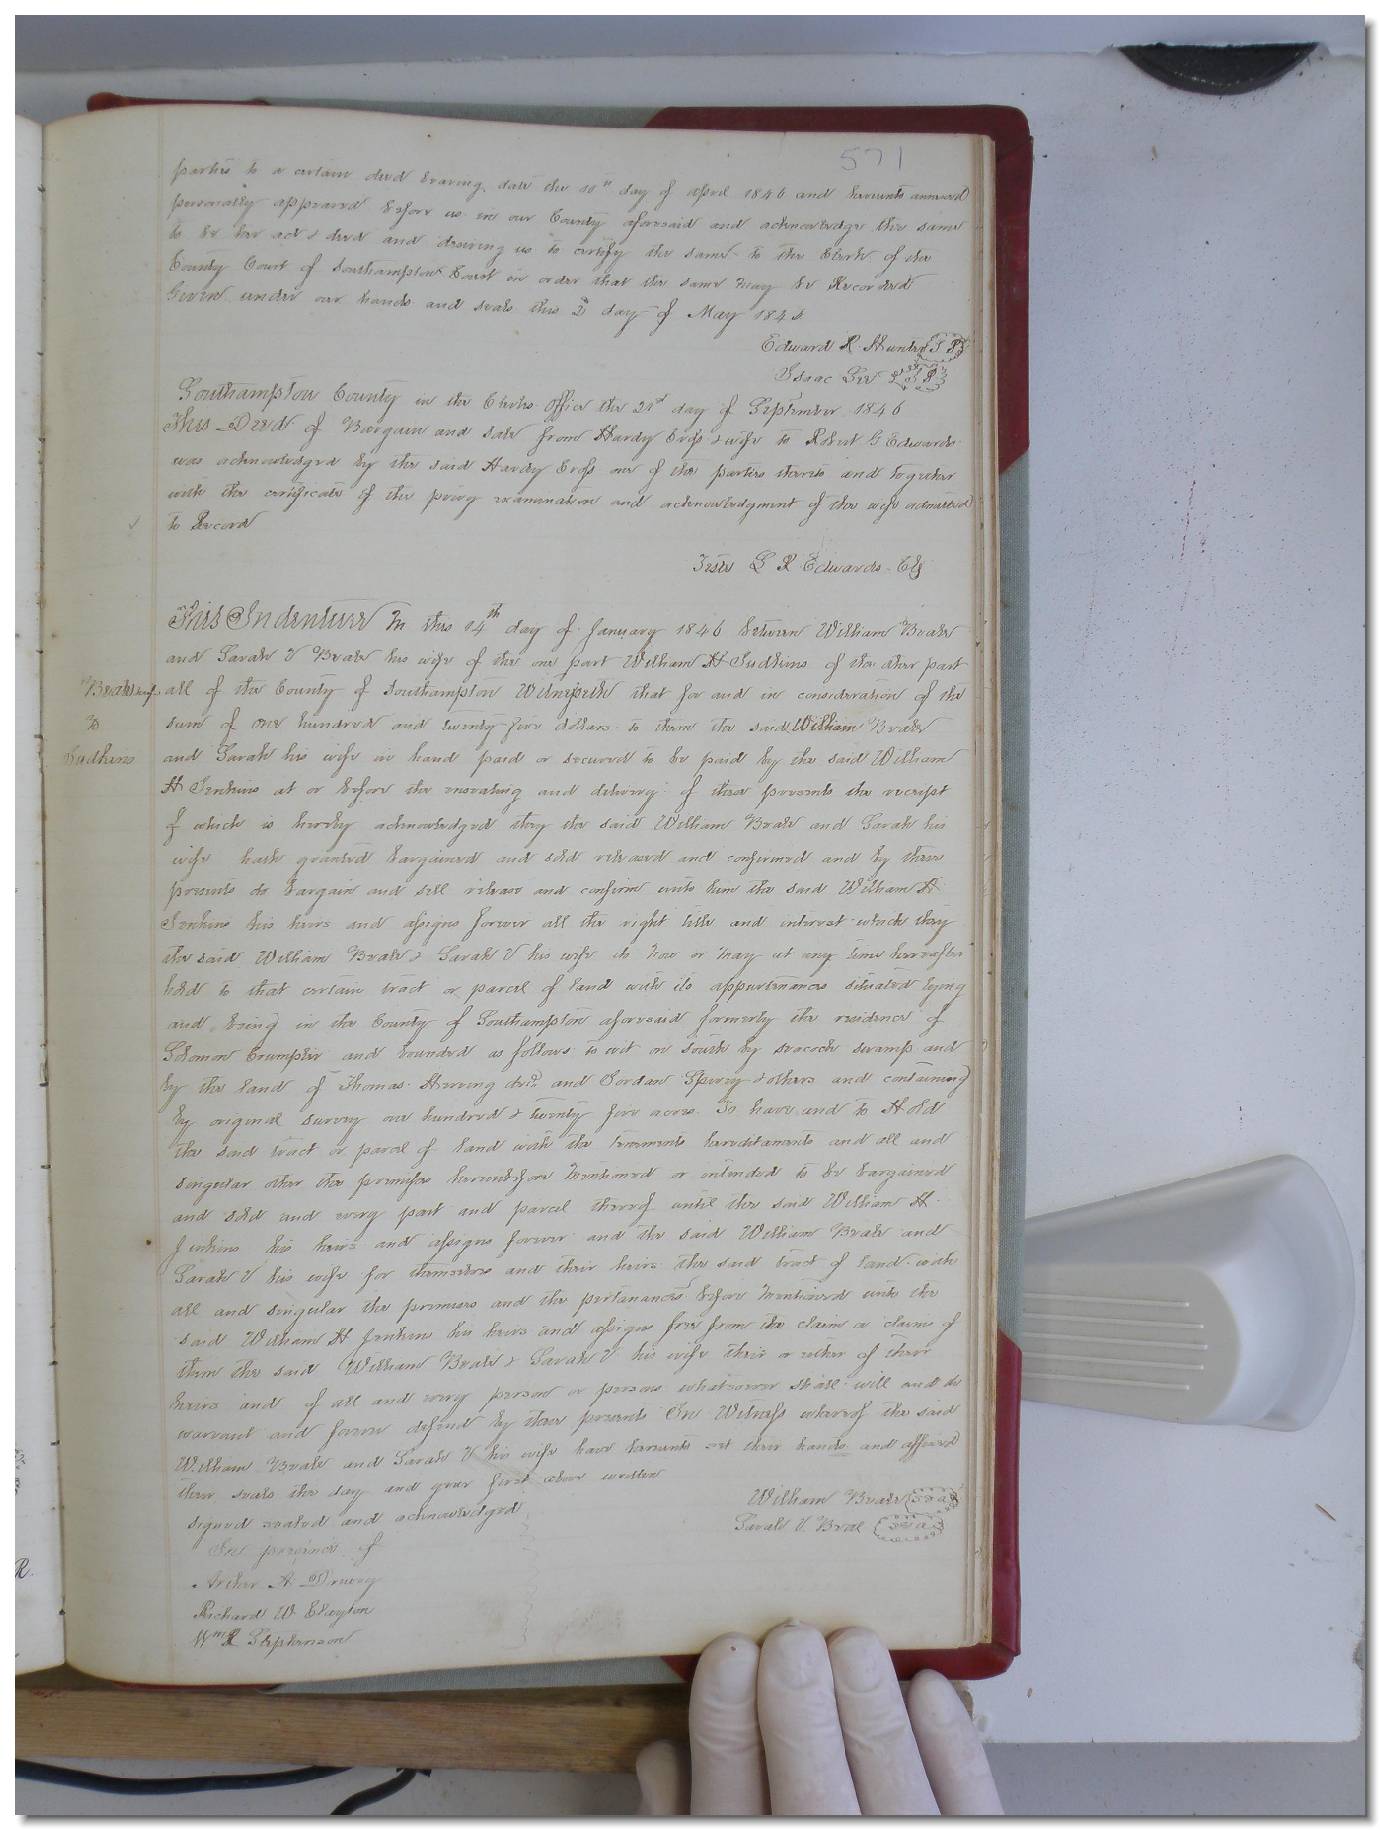 571
parties to a certain deed bearing date the 10th day of April 1846 and hereunto annexed
personally appeared before us in our County aforesaid and acknowledge the same
to be her act & deed and desiring us to certify the same to the Clerk of the
County Court of Southampton Court in order that the same may be Recorded
Given under our hands and seals this 2d day of May 1846
Edward R. Hunter
Isaac
Southampton County in the Clerks Office the 21st day of September 1846
This Deed of Bargain and sale from Hardy Cross & wife to Robert G Edwards
was acknowledged by the said Hardy Cross one of the parties thereto and together
with the certificate of the privy examination and acknowledgment of the wife admitted
to Record
Teste L R Edwards Clk
This Indenture M this 14th day of January 1846 between William Beale
and Sarah V Beale his wife of the one part William H Judkins of the other part
Beale & wife
all of the County of Southampton Witnesseth that for and in consideration of the
To
sum of one hundred and twenty five dollars to them the said William Beale
Judkins
and Sarah his wife in hand paid or secured to be paid by the said William
H Jenkins at or before the ensealing and delivery of these presents the receipt
of which is hereby acknowledged they the said William Beale and Sarah his
wife hath granted bargained and sold released and confirmed and by these
presents do bargain and sell release and confirm unto him the said William H
Jenkins his heirs and assigns forever all the right title and interest which they
the said William Beale & Sarah V his wife do now or may at any time hereafter
hold to that certain tract or parcel of land with its appurtenances situated lying
and being in the County of Southampton aforesaid formerly the residence of
Solomon Crumpler and bounded as follows to wit on south by seacock swamp and
by the land of Thomas Herring decd and Jordan Spivey & others and containing
by original survey one hundred & twenty five acres To have and to Hold
the said tract or parcel of land with the tenements hereditaments and all and
singular other the premises heretofore mentioned or intended to be bargained
and sold and every part and parcel thereof until the said William H
Jenkins his heirs and assigns forever and the said William Beale and
Sarah V his wife for themselves and their heirs the said tract of land with
all and singular the premises and the pertanances before mentioned unto the
said William H Jenkins his heirs and assigns free from the claim or claims of
them the said William Beale & Sarah V his wife their or either of their
heirs and of all and every person or persons whatsoever shall will and do
warrant and forever defend by these presents In Witness whereof the said
William Beale and Sarah V his wife have hereunto set their hands and affixed
their seals the day and year first above written
signed sealed and acknowledged
William Beale seal
Sarah V. Beal seal
In presence of
Arthur A Drewry
Richard W Clayton
Wm R Stephenson
R.